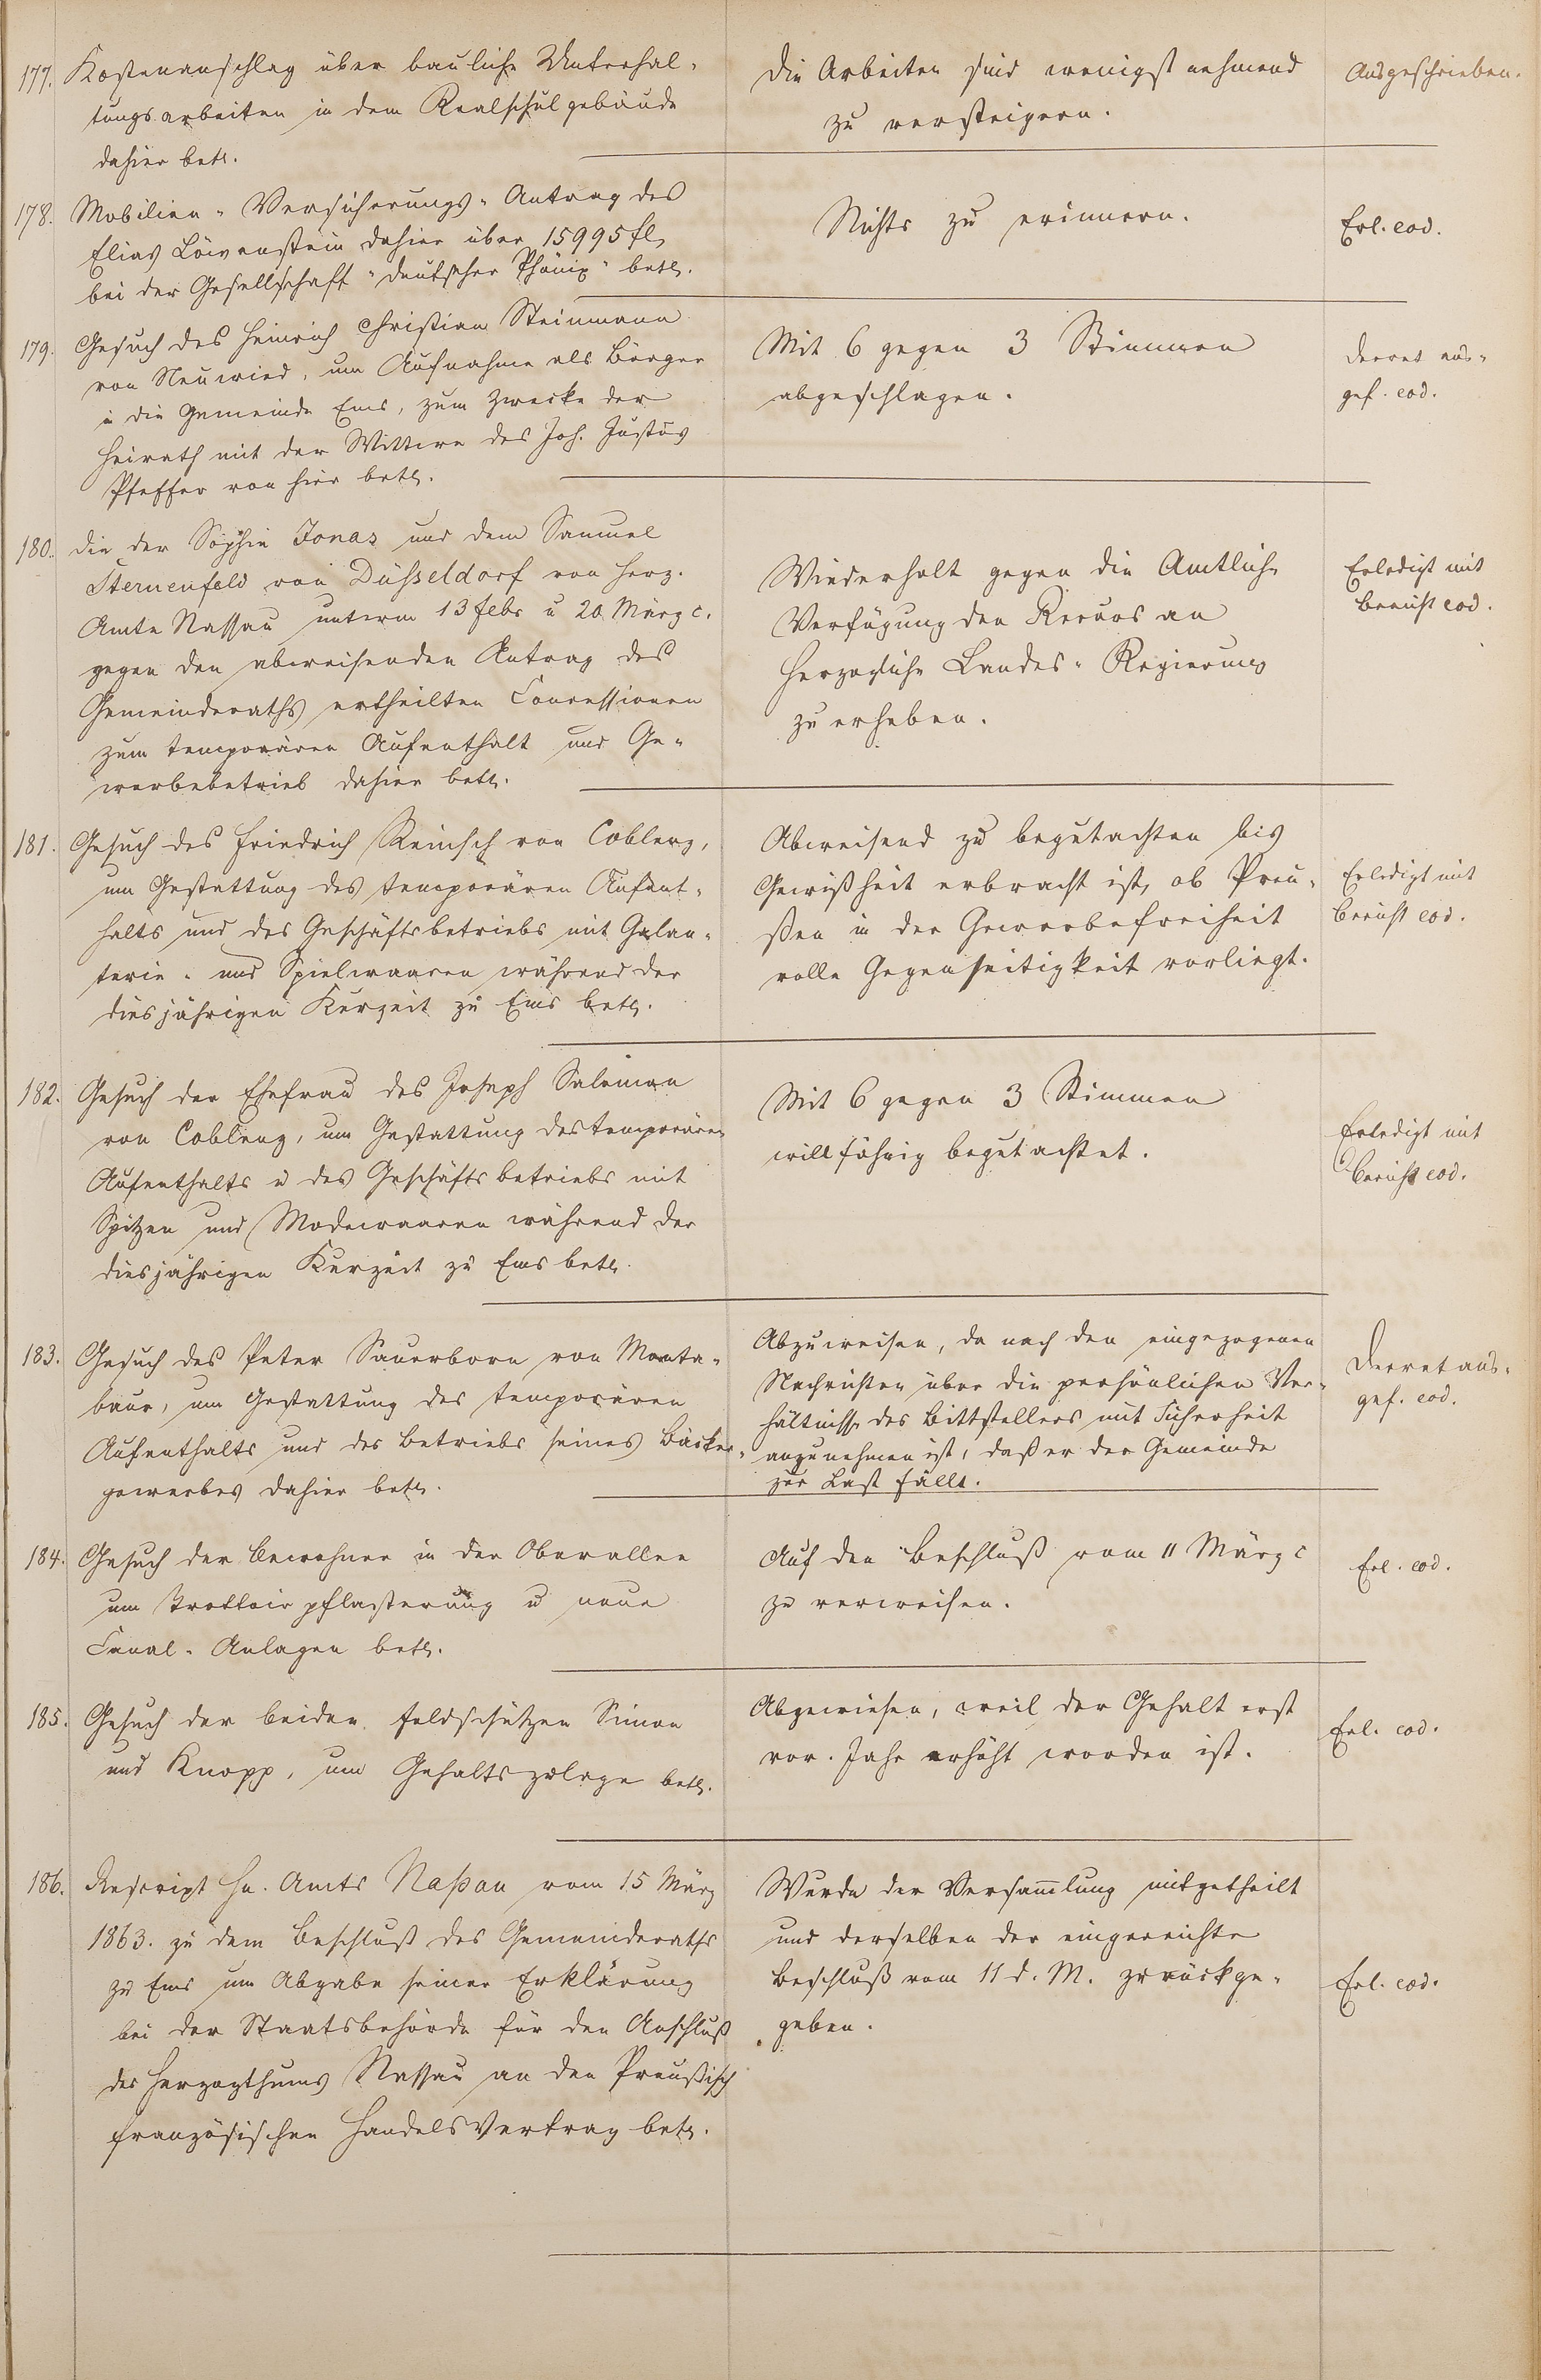 177. Kostenanschlag über bauliche Unterhal-
tungsarbeiten in dem Realschulgebäude
dahier betr.
Die Arbeiten sind wenigstnehmend
zu versteigern.
Ausgeschrieben.
178. Mobilien-Versicherungs-Antrag des
Elias Löwenstein dahier über 15995 fl
bei der Gesellschaft "deutscher Phönix" betr.
Nichts zu erinnern.
Erl. eod.
179. Gesuch des Heinrich Christian Steinmann
von Neuwied, um Aufnahme als Bürger
in die Gemeinde Ems, zum Zwecke der
Heirath mit der Wittwe des Joh. Justus
Pfeffer von hier betr.
Mit 6 gegen 3 Stimmen
abgeschlagen.
Decret aus-
gef. eod.
180. Die der Sophie Jonas und dem Samuel
Sternenfeld von Düsseldorf von Herz.
Amte Nassau unterm 13 Febr u 20 März c.
gegen den abweisenden Antrag des
Gemeinderaths ertheilten Concessionen
zum temporären Aufenthalt und Ge-
werbebetrieb dahier betr.
Wiederholt gegen die Amtliche
Verfügung den Recurs an
Herzogliche Landes-Regierung
zu erheben.
Erledigt mit
Bericht eod.
181. Gesuch des Friedrich Reinsch von Coblenz,
um Gestattung des temporären Aufent-
halts und des Geschäftsbetriebs mit Galan-
terie- und Spielwaaren während der
diesjährigen Kurzeit zu Ems betr.
Abweisend zu begutachten bis
Gewißheit erbracht ist, ob Preu-
ßen in der Gewerbefreiheit
volle Gegenseitigkeit vorliegt.
Erledigt mit
Bericht eod.
182. Gesuch der Ehefrau des Joseph Salomon
von Coblenz, um Gestattung des temporären
Aufenthalts u des Geschäftsbetriebs mit
Spitzen und Modewaaren während der
diesjährigen Kurzeit zu Ems betr.
Mit 6 gegen 3 Stimmen
willfährig begutachtet.
Erledigt mit
Bericht eod.
183. Gesuch des Peter Sauerborn von Monta-
baur, um Gestattung des temporären
Aufenthalts und des Betriebs seines Bäcker-
gewerbes dahier betr.
Abzuweisen, da nach den eingezogenen
Nachrichten über die persönlichen Ver-
hältnisse des Bittstellers mit Sicherheit
anzunehmen ist, daß er der Gemeinde
zur Last fällt.
Decret aus-
gef. eod.
184. Gesuch der Bewohner in der Oberallee
um Trottoirpflasterung u neue
Canal-Anlagen betr.
Auf den Beschluß vom 11 März c
zu verweisen.
Erl. eod.
185. Gesuch der beiden Feldschützen Simon
und Knopp, um Gehaltszulage betr.
Abgewiesen, weil der Gehalt erst
vor. Jahr erhöht worden ist.
Erl. eod.
186. Rescript Hn. Amts Naßau vom 15 März
1863. zu dem Beschluß des Gemeinderaths
zu Ems um Abgabe seiner Erklärung
bei der Staatsbehörde für den Anschluß
des Herzogthums Nassau an den Preußisch
französischen Handelsvertrag betr.
Wurde der Versammlung mitgetheilt
und derselben der eingereichte
Beschluß vom 11 d. M. zurückge-
geben.
Erl. eod.